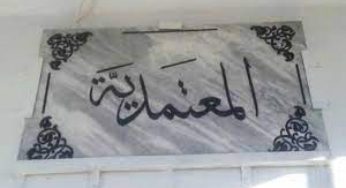 المعتمديّة